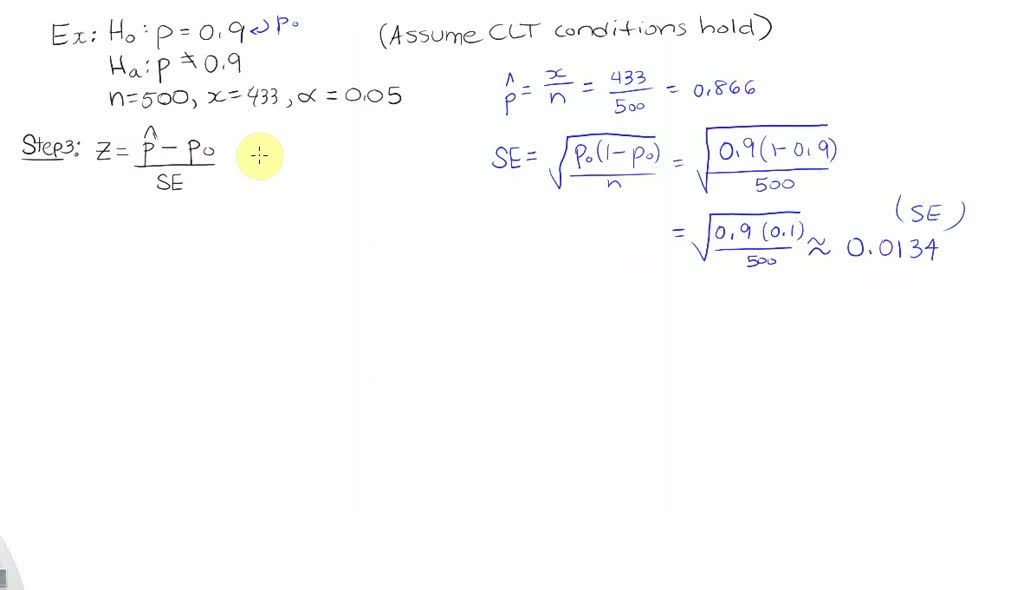 Ex: H₀: p = 0.9 ↩ p₀
(Assume CLT conditions hold)
Hₐ: p ≠ 0.9
n=500, x=433, α = 0.05
p̂ = x/n = 433/500 = 0.866
Step3: z = (p̂ − p₀)/SE
SE = √(p₀(1−p₀)/n) = √(0.9(1−0.9)/500)
(SE)
= √(0.9(0.1)/500) ≈ 0.0134